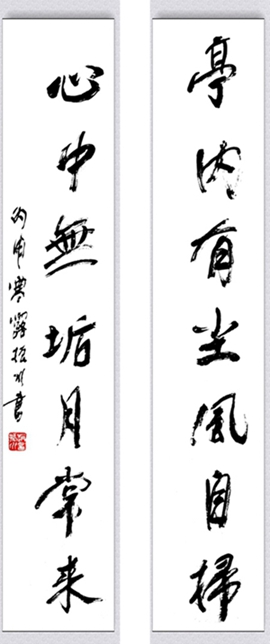 亭内有尘風自掃
心中無垢月常来
丙申寒露
書